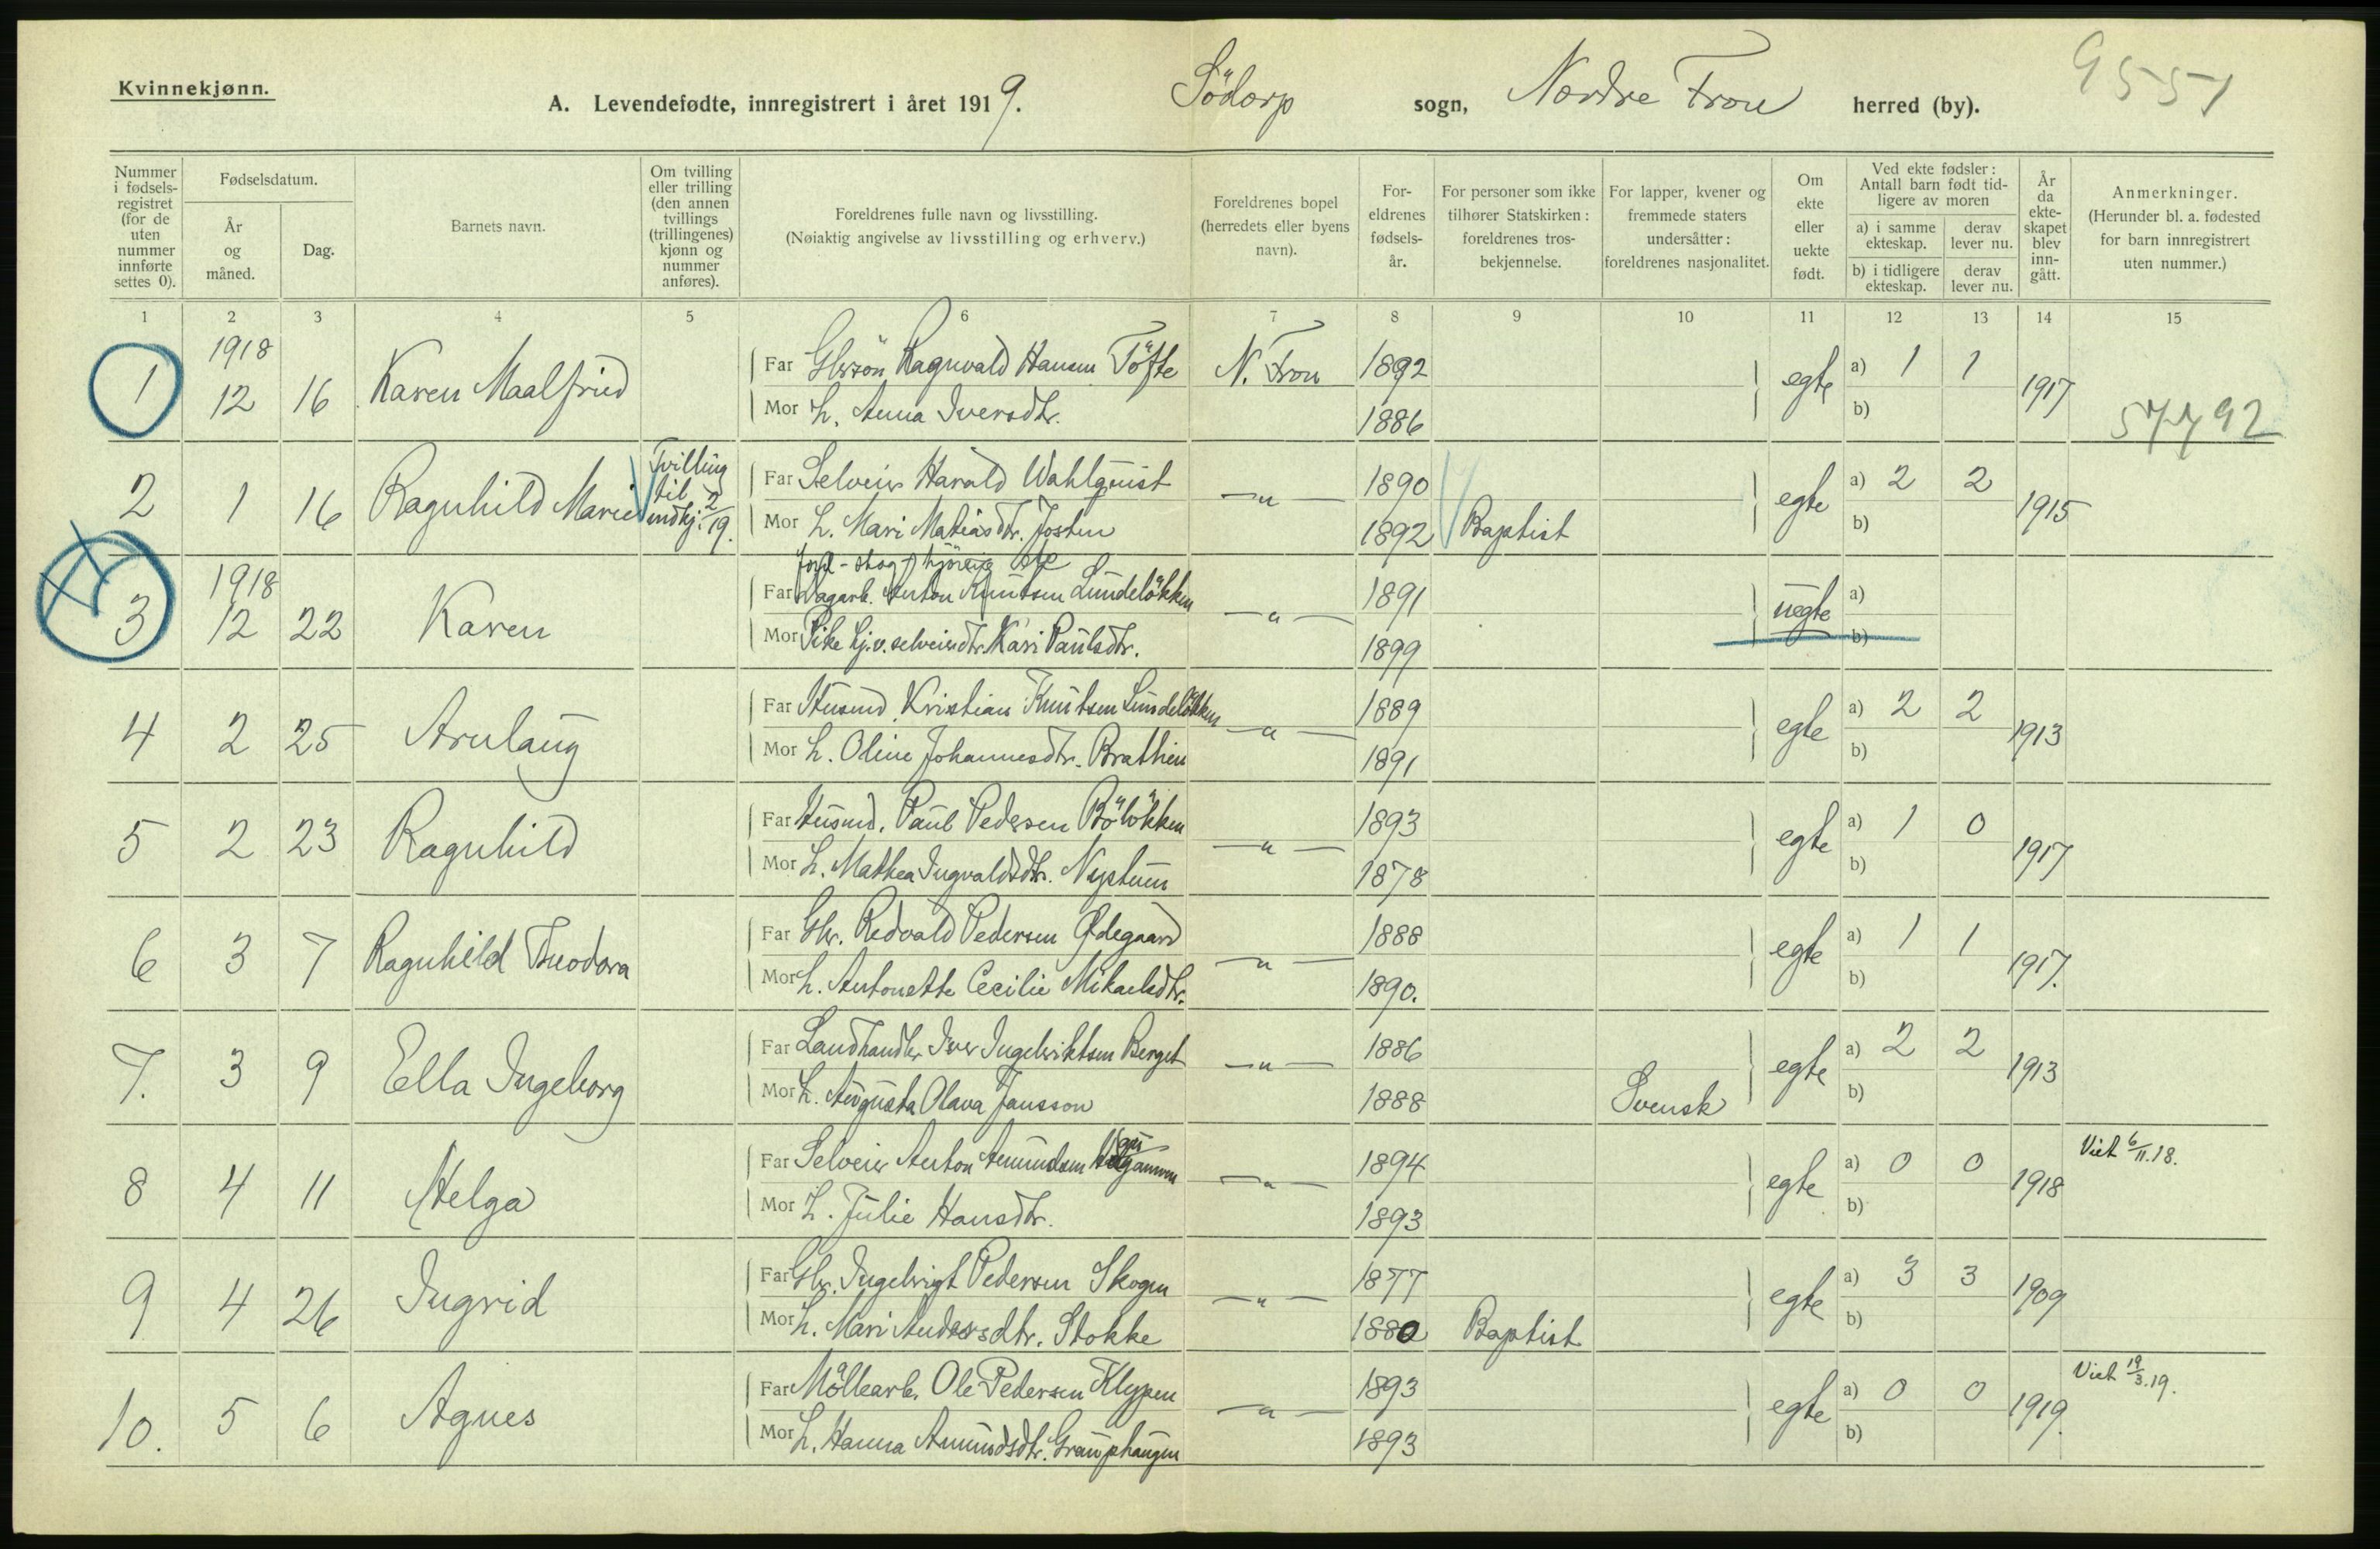 Kvinnekjønn.
A. Levendefødte, innregistrert i året 1919. Södorp sogn, Nordre Fron herred (by). 9551
Nummer i fødselsregistret (for de uten nummer innførte settes 0).
Fødselsdatum.
År og måned.
Dag.
Barnets navn.
Om tvilling eller trilling (den annen tvillings (trillingenes) kjønn og nummer anføres).
Foreldrenes fulle navn og livsstilling.
(Nøiaktig angivelse av livsstilling og erhverv.)
Foreldrenes bopel (herredets eller byens navn).
Foreldrenes fødselsår.
For personer som ikke tilhører Statskirken: foreldrenes trosbekjennelse.
For lapper, kvener og fremmede staters undersåtter: foreldrenes nasjonalitet.
Om ekte eller uekte født.
Ved ekte fødsler: Antall barn født tidligere av moren
a) i samme ekteskap. derav lever nu.
b) i tidligere ekteskap. derav lever nu.
År da ekteskapet blev inngått.
Anmerkninger.
(Herunder bl. a. fødested for barn innregistrert uten nummer.)
1 2 3 4 5 6 7 8 9 10 11 12 13 14 15
1 1918 12 16 Karen Maalfrid Far Gbrsön Ragnvald Hansen Töfte N. Fron 1892 egte a) 1 1 1917
Mor h. Anna Iversdtr. 1886 b) 57792
2 1 16 Ragnhild Marie Tvilling til mdkj. 2/19. Far Selveier Harald Wahlquist —„— 1890 egte a) 2 2 1915
Mor h. Mari Matiasdtr. Josten 1892 Baptist b)
Jord- skog-
3 1918 12 22 Karen Far Dagarb. Anton Knutsen Lundelökken —„— 1891 uegte a)
Mor Pike hj.v. selveierdtr. Kari Paulsdtr. 1899 b)
4 2 25 Arnlaug Far Husmd. Kristian Knutsen Lundelökken —„— 1889 egte a) 2 2 1913
Mor h. Oline Johannesdtr. Brathien 1891 b)
5 2 23 Ragnhild Far Husmd. Paul Pedersen Bölökken —„— 1893 egte a) 1 0 1917
Mor h. Mathea Ingvaldsdtr. Nystuen 1878 b)
6 3 7 Ragnhild Theodora Far Gbr. Redvald Pedersen Ødegaard —„— 1888 egte a) 1 1 1917.
Mor h. Antonette Cecilie Mikaelsdtr. 1890. b)
7. 3 9 Ella Ingeborg Far Landhandler Iver Ingebriktsen Berget —„— 1886 egte a) 2 2 1913
Mor h. Augusta Olava Jansson 1888 Svensk b)
8 4 11 Helga Far Selveier Anton Amundsen —„— 1894 egte a) 0 0 1918 Viet 6/11.18.
Mor h. Julie Hansdtr. 1893 b)
9 4 26 Ingrid Far Gbr. Ingebrigt Pedersen Skogen —„— 1877 egte a) 3 3 1909
Mor h. Mari Andersdtr. Stokke 1880 Baptist b)
10. 5 6 Agnes Far Möllearb. Ole Pedersen Klypen —„— 1893 egte a) 0 0 1919. Viet 19/3.19.
Mor h. Hanna Amundsdtr. Grauphaugen 1893 b)